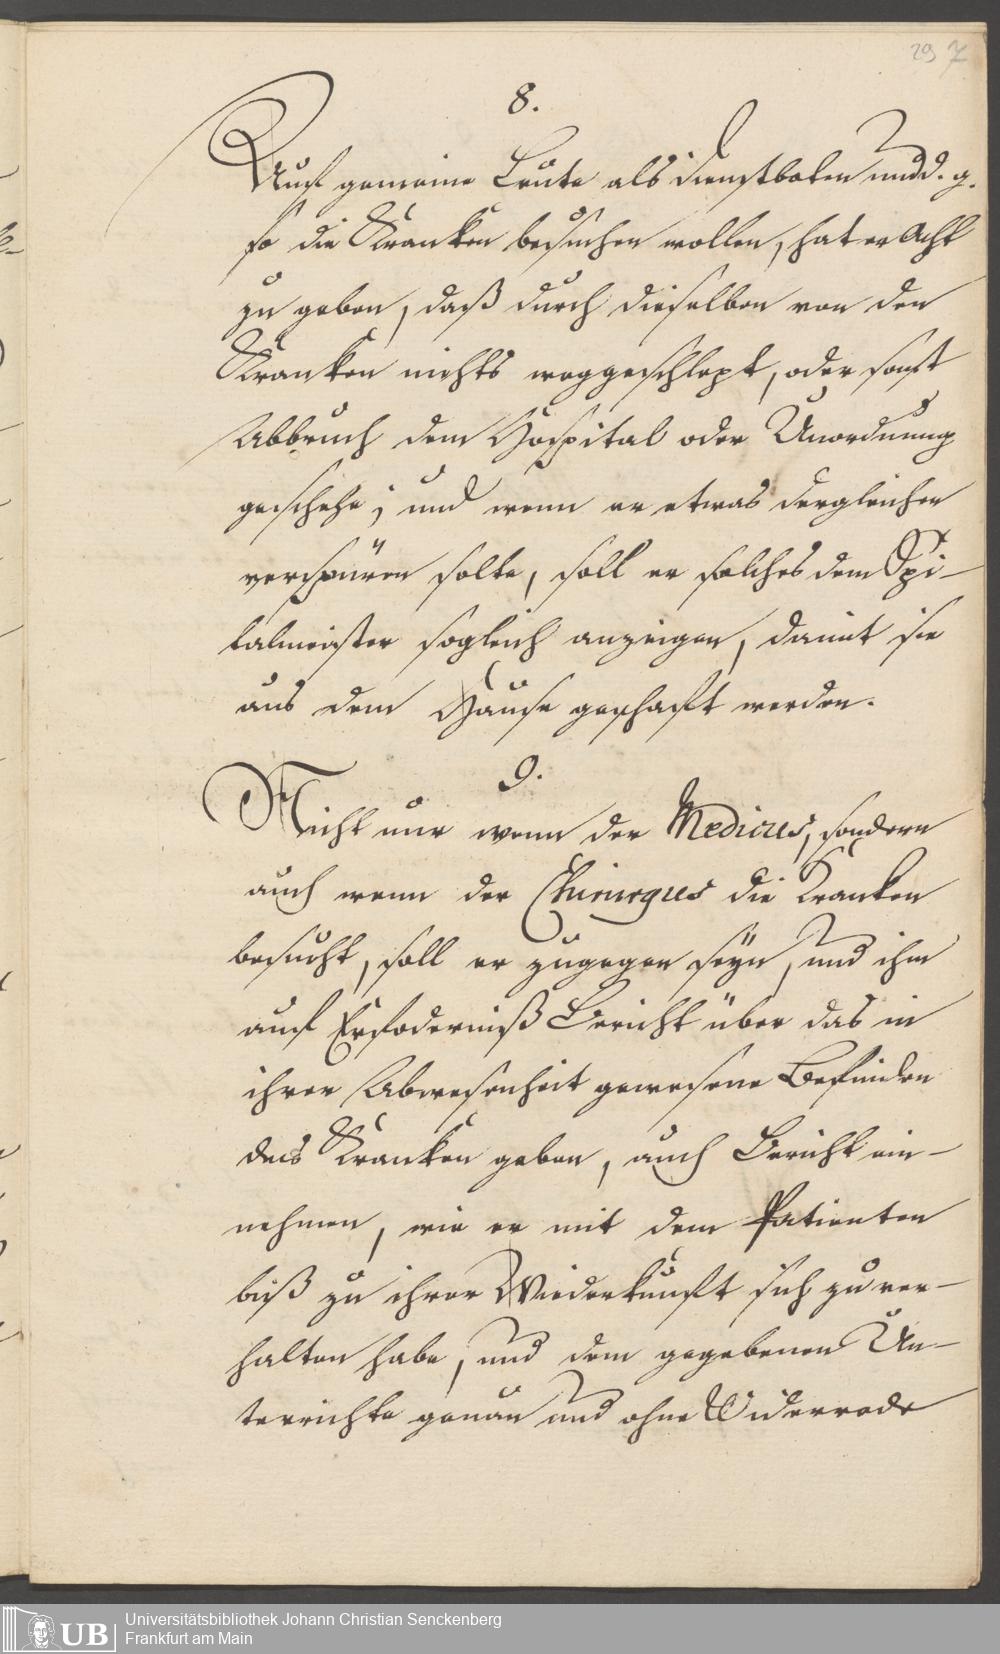 297
8.
Auf gemeine Leute als Dienstboten und d. g.
so die Kranken besuchen wollen, hat er Acht
zu geben, daß durch dieselben von den
Kranken nichts weggeschlept, oder sonst
Abbruch dem Hospital oder Unordnung
geschehe; und wenn er etwas dergleichen
verspüren solte, soll er solches dem Spi-
talmeister sogleich anzeigen, damit sie
aus dem Hause geschaft werden.
9.
Nicht nur wenn der Medicus, sondern
auch wenn der Chirurgus die Kranken
besucht, soll er zugegen seyn, und ihm
auf Erfoderniß Bericht über das in
ihrer Abwesenheit gewesene Befinden
des Kranken geben, auch Bericht ein-
nehmen, wie er mit dem Patienten
biß zu ihrer Wiederkunft sich zu ver-
halten habe, und dem gegebenen Un-
terrichte genau und ohne Widerrede
UB
Universitätsbibliothek Johann Christian Senckenberg
Frankfurt am Main